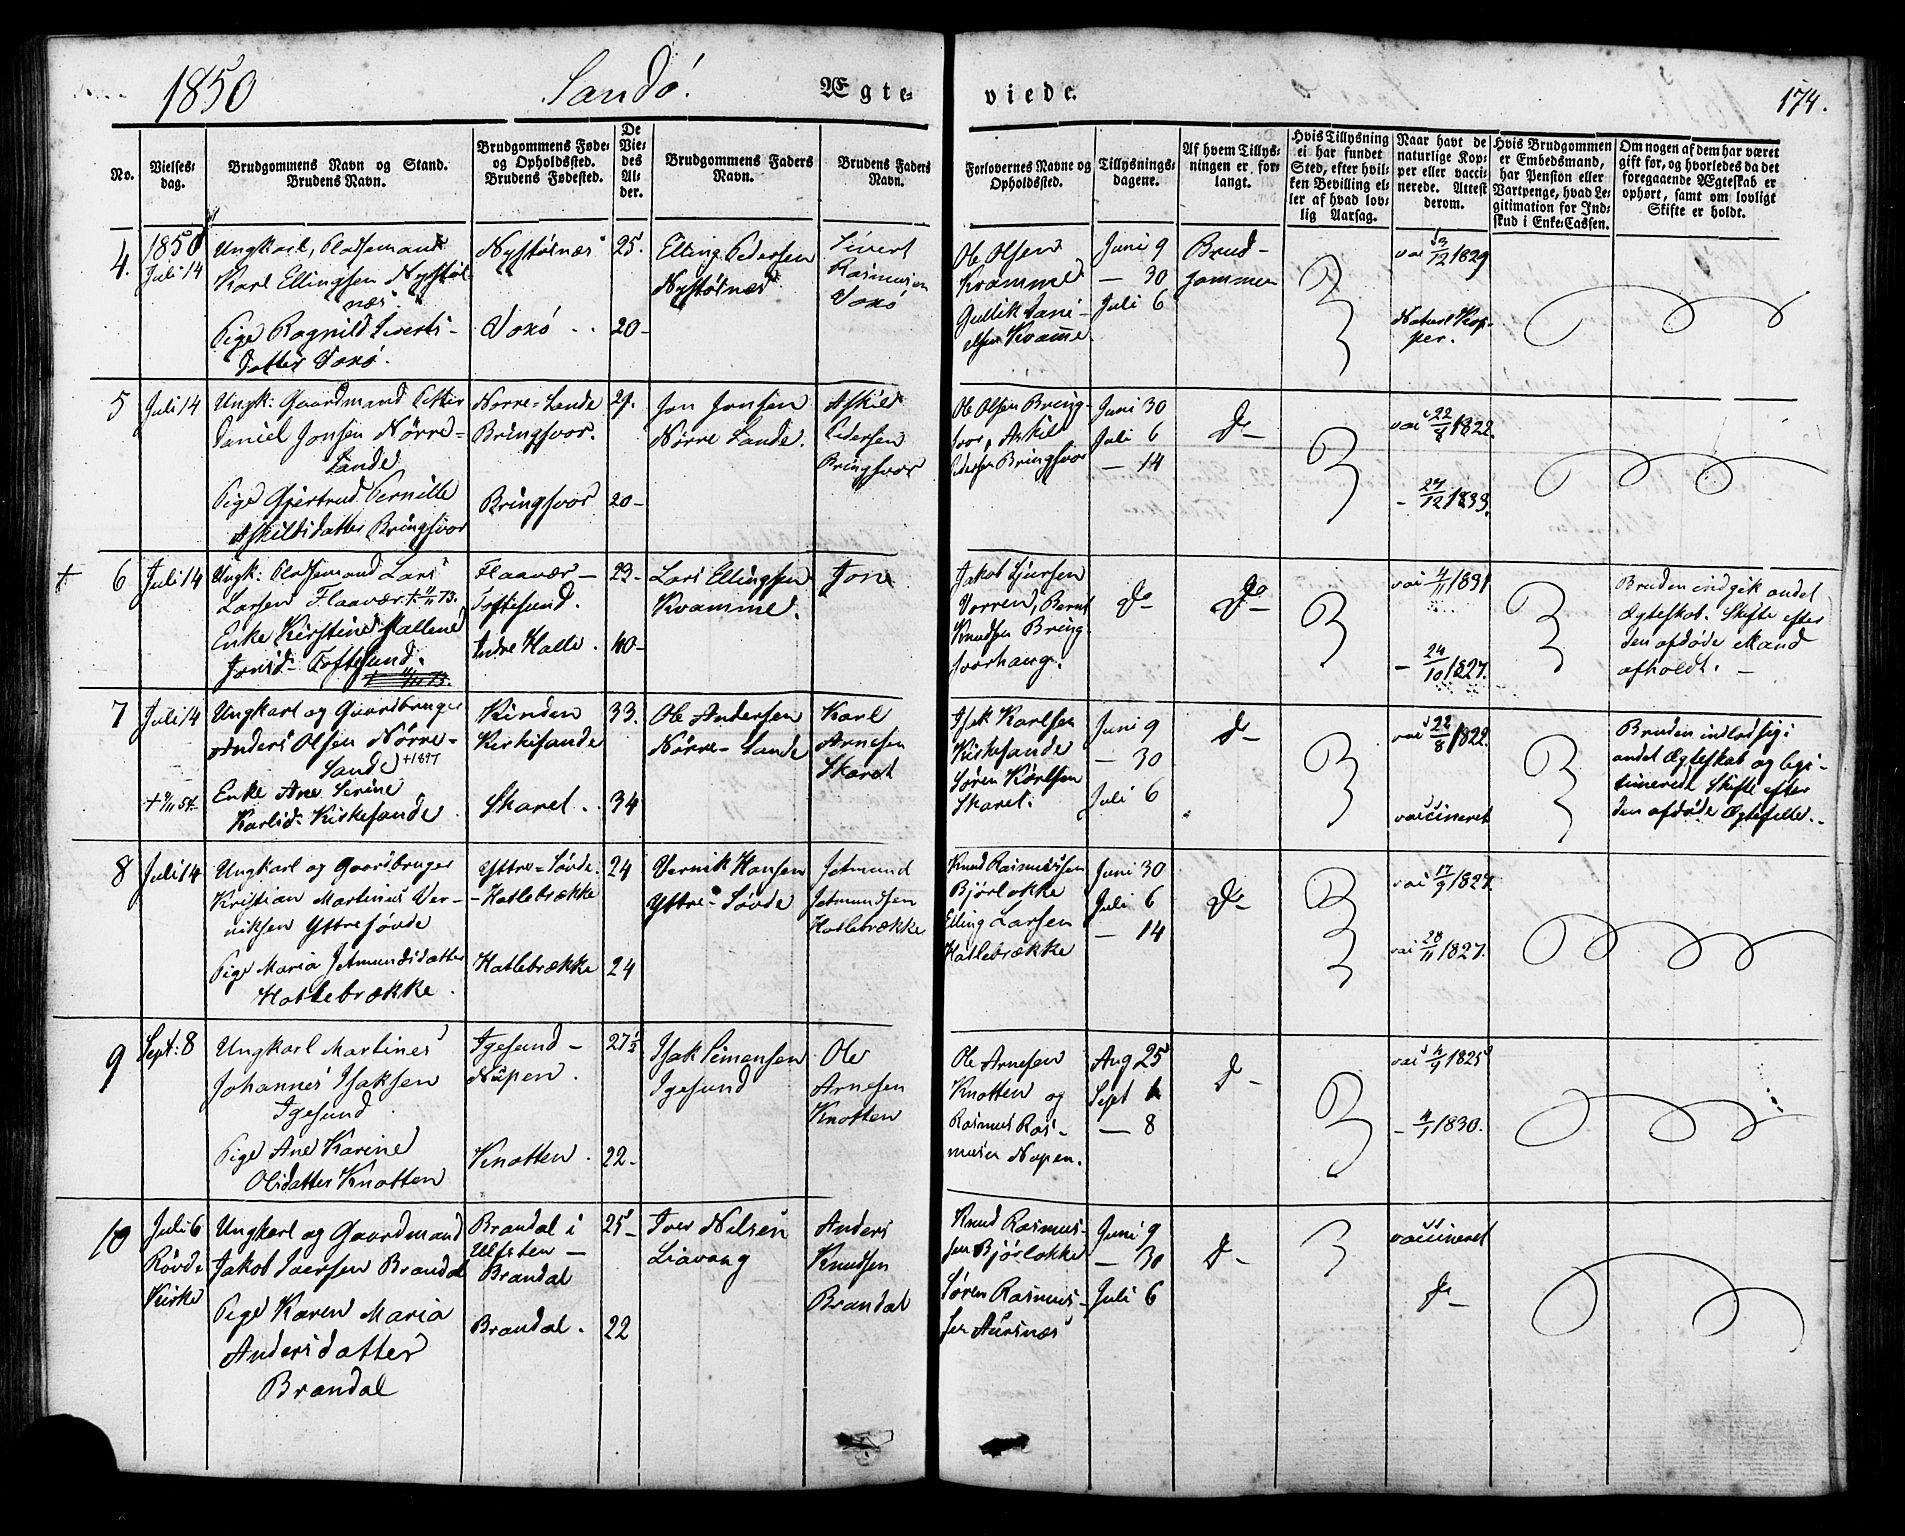 1850
Sandö.
Ægte-
viede.
174.
No.
Vielses-
dag.
Brudgommens Navn og Stand.
Brudens Navn.
Brudgommens Føde-
og Opholdssted.
Brudens Fødested.
De
Vie-
des
Al-
der.
Brudgommens Faders
Navn.
Brudens Faders
Navn.
Forlovernes Navne og
Opholdssted.
Tillysnings-
dagene.
Af hvem Tillys-
ningen er for-
langt.
Hvis Tillysning
ei har fundet
Sted, efter hvil-
ken Bevilling el-
ler af hvad lov-
lig Aarsag.
Naar havt de
naturlige Kop-
per eller vacci-
nerede. Attest
derom.
Hvis Brudgommen
er Embedsmand,
har Pension eller
Vartpenge, hvad Le-
gitimation for Ind-
skud i Enke-Cassen.
Om nogen af dem har været
gift før, og hvorledes da det
foregaaende Ægteskab er
ophørt, samt om lovligt
Skifte er holdt.
4.
1850
Juli 14
Ungkarl, Pladsemand
Karl Ellingsen Nystöl
næs
Pige Ragnild Siverts-
datter Voxö.
Nystölnæs
Voxö
25.
20-
Elling Pedersen
Nystölnæs
Sivert
Rasmusen
Voxö
Ole Olsen
Kvamme
Gullik Dani-
elsen Kvamme
Juni 9
— 30
Juli 6
Brud-
gommen
vac 3/12 1829
Naturl Kop-
per.
5
Juli 14
Ungk: Gaardmand Petter
Daniel Jonsen Nörre-
Sande
Pige Gjertrud Pernille
Askildsdatter Bringsvor
Norre-Sande
Bringsvor.
Bringsvor
29.
20-
Jon Jonsen
Nörre Sande.
Askild
Pedersen
Bringsvor
Ole Olsen Bring-
svor, Askild
Pedersen Bringsvor
Juni 30
Juli 6
— 14
Do
vac 22/8 1822.
- 27/12 1833.
†
6
Juli 14
Ungk: Pladsemand Lars
Larsen Flaavær † 4/11 73.
Enke Kirstine Mallene
Jonsd- Toftesund.
† 4/11 73.
Flaavær-
Toftesund.
Indre Halle.
23-
40-
Lars Ellingsen
Kvamme.
Jon
Jakob Sjursen
Vorren, Bernt
Knudsen Bring-
svorhaug.
Do
Do
vac 4/11 1831
- 24/10 1827.
Bruden indgik andet
Ægteskab. Skifte efter
den afdøde Mand
afholdt. -
7
Juli 14
† 9/11 54
Ungkarl og Gaardbruger
Anders Olsen Nörre-
Sande † 1897
Enke Ane Serine
Karlsd: Kirkesande
Rinden
Kirkesande
Skaret
33.
34
Ole Andersen
Nörre-Sande
Karl
Arnesen
Skaret
Isak Karlsen
Kirkesande
Sören Karlsen
Skaret.
Juni 9
— 30
Juli 6
Do
vac 22/8 1822.
vaccineret
Bruden indlod sig i
andet Ægteskab og legi-
timerede Skifte efter
den afdøde Ægtefelle.-
8
Juli 14
Ungkarl og Gaardbruger
Kristian Martinus Ver-
niksen Yttresövde
Pige Maria Jetmundsdatter
Hatlebrække.
Yttre-Sövde.
-Hatlebrække
Hatlebrække
24
24
Vernik Hansen
Yttre-Sövde
Jetmund
Jetmundsen
Hatlebrække
Knud Rasmussen
Björlokke
Elling Larsen
Hatlebrække
Juni 30
Juli 6
— 14
Do
vac 17/9 1827.
vac 28/11 1827.
9
Sept: 8
Ungkarl Martines
Johannes Isaksen
Igesund.
Pige Ane Karine
Olsdatter Knotten
Igesund-
Nupen.
Knotten.
27 1/2
22-
Isak Simensen
Igesund
Ole
Arnesen
Knotten
Ole Arnesen
Knotten og
Rasmus Ras-
musen Nupen.
Aug 25
Sept 1
— 8
Do
vac 4/9 1825
- 4/1 1830.
10
Juli 6
Rövde
Kirke
Ungkarl og Gaardmand
Jakob Iversen Brandal
Pige Karen Maria
Andersdatter
Brandal
Brandal i
Ulfsten-
Brandal
Brandal.
25-
22
Iver Nilsen
Liavaag
Anders
Knudsen
Brandal
Knud Rasmus-
sen Björlokke
Sören Rasmus-
sen Aursnæs
Juni 9
— 30
Juli 6
Do
vaccineret
Do